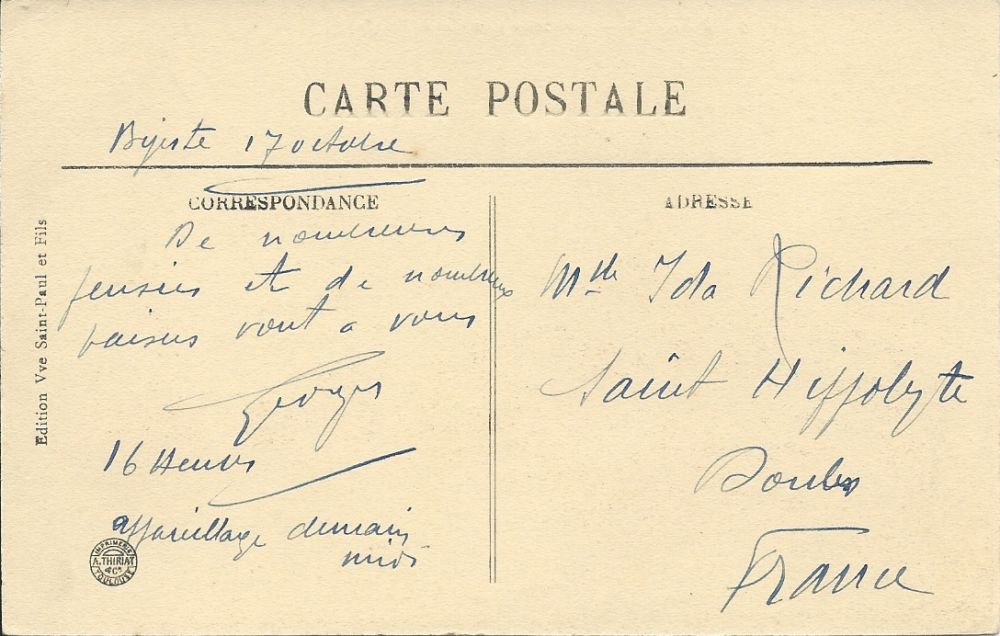 CARTE POSTALE
Bizerte 17 octobre
CORRESPONDANCE
De nombreuses
pensées et de nombreux
baisers vont a vous
Georges
16 Heures
appareillage demain
midi
ADRESSE
Mlle Ida Richard
Saint Hippolyte
Doubs
France
Edition Vve Saint-Paul et Fils
IMPRIMERIE
A. THIRIAT
& Cie
TOULOUSE